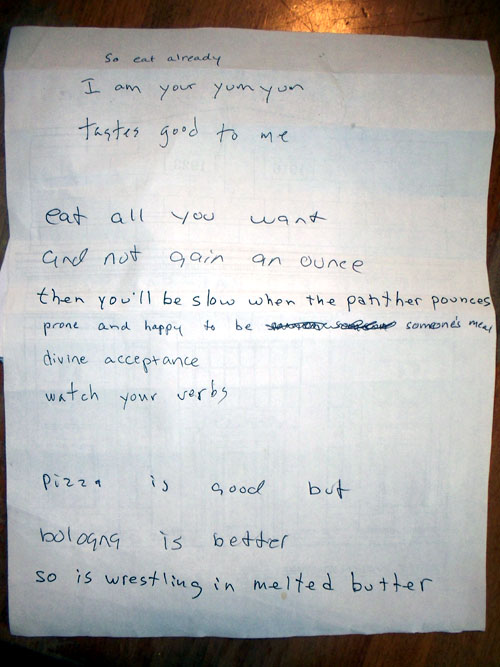 So eat already
I am your yum yum
tastes good to me
eat all you want
and not gain an ounce
then you'll be slow when the panther pounces
prone and happy to be someone's meal
divine acceptance
watch your verbs
pizza is good but
bologna is better
so is wrestling in melted butter